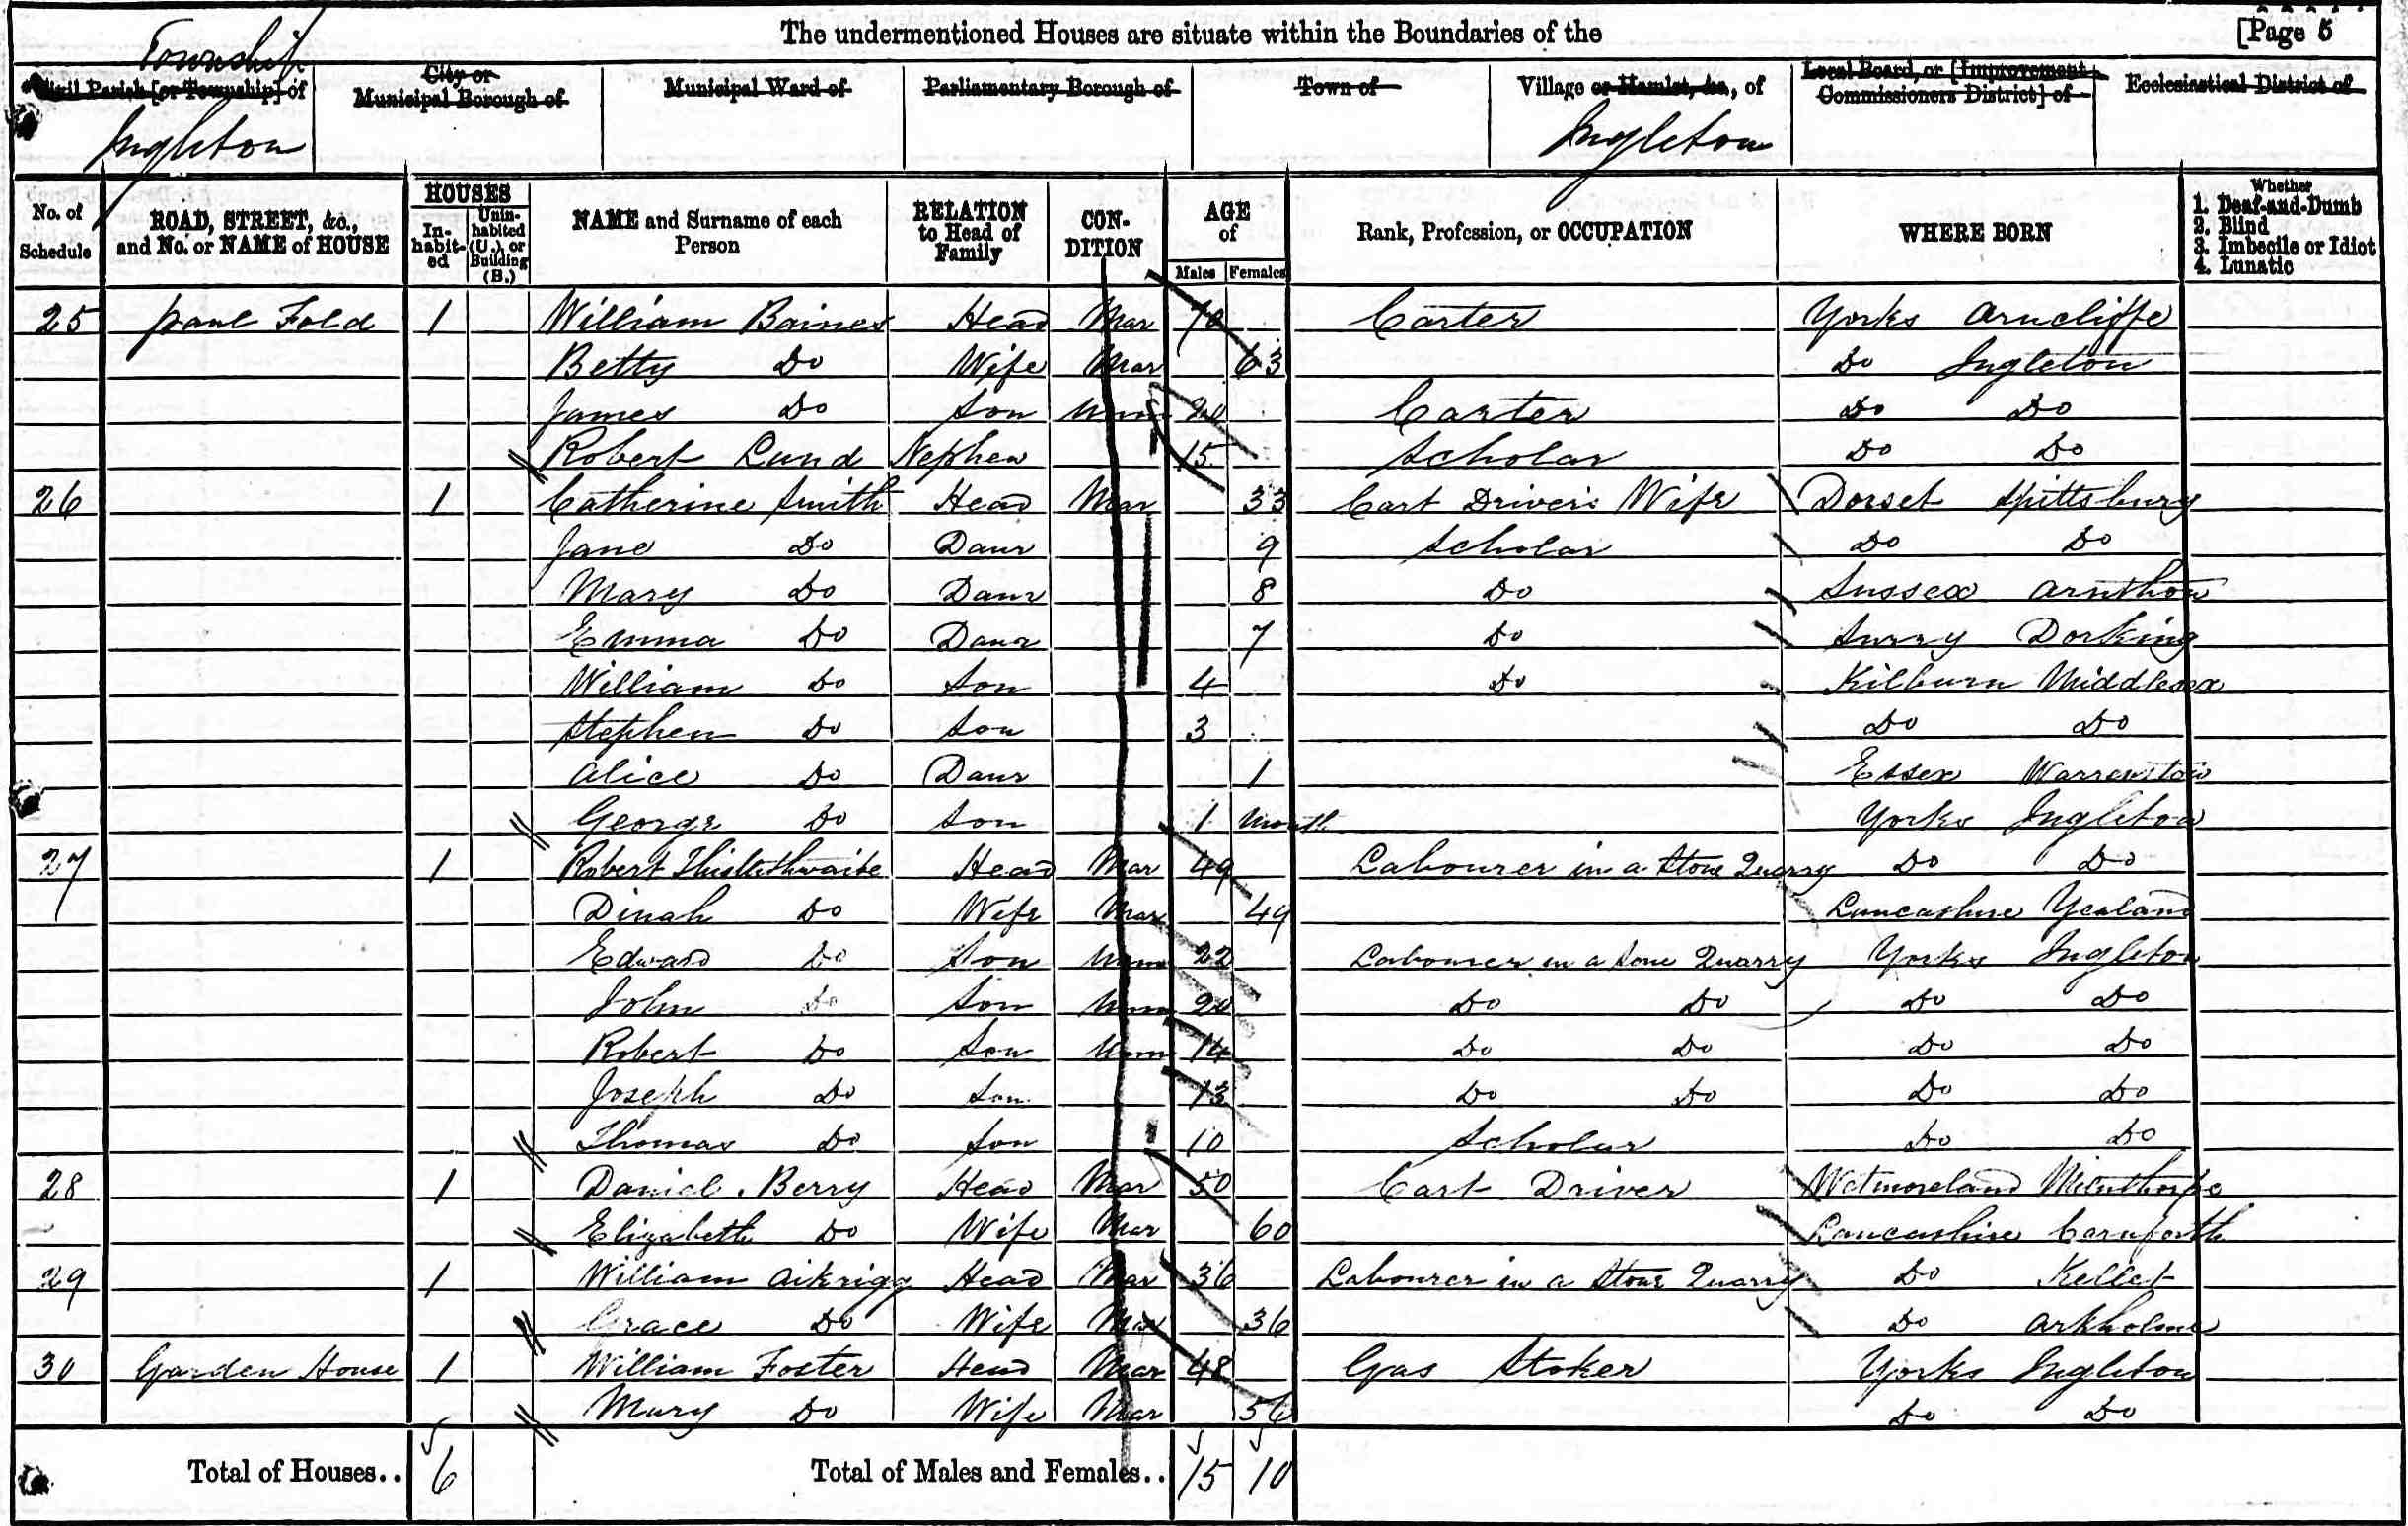 The undermentioned Houses are situate within the Boundaries of the [Page 5
Township
Civil Parish [or Township] of City or Municipal Borough of Municipal Ward of Parliamentary Borough of Town of Village or Hamlet, &c., of Local Board, or [Improvement Commissioners District] of Ecclesiastical District of
Ingleton Ingleton
No. of Schedule ROAD, STREET, &c., and No. or NAME of HOUSE HOUSES Inhabited Uninhabited (U.), or Building (B.) NAME and Surname of each Person RELATION to Head of Family CONDITION AGE of Males Females Rank, Profession, or OCCUPATION WHERE BORN Whether 1. Deaf-and-Dumb 2. Blind 3. Imbecile or Idiot 4. Lunatic
25 Fold 1 William Baines Head Mar Carter Yorks Arncliffe
Betty Do Wife Mar 63 Do Ingleton
James Do Son Unm 20 Carter Do Do
Robert Lund Nephew 15 Scholar Do Do
26 1 Catherine Smith Head Mar 33 Cart Driver's Wife Dorset Spittsbury
Jane Do Daur 9 Scholar Do Do
Mary Do Daur 8 Do Sussex
Emma Do Daur 7 Do Surry Dorking
William Do Son 4 Do Kilburn Middlesex
Stephen Do Son 3 Do Do
Alice Do Daur 1 Essex
George Do Son 1 Month Yorks Ingleton
27 1 Robert Thistlethwaite Head Mar 49 Labourer in a Stone Quarry Do Do
Dinah Do Wife Mar 49 Lancashire Yealand
Edward Do Son Unm 22 Labourer in a Stone Quarry Yorks Ingleton
John Do Son Unm 20 Do Do Do Do
Robert Do Son Unm 14 Do Do Do Do
Joseph Do Son 13 Do Do Do Do
Thomas Do Son 10 Scholar Do Do
28 1 Daniel Berry Head Mar 50 Cart Driver Wetmoreland Milnthorpe
Elizabeth Do Wife Mar 60 Lancashire Carnforth
29 1 William Aikrigg Head Mar 36 Labourer in a Stone Quarry Do Kellet
Grace Do Wife Mar 36 Do Arkholme
30 Garden House 1 William Foster Head Mar 48 Gas Stoker Yorks Ingleton
Mary Do Wife Mar 56 Do Do
Total of Houses.. 6 Total of Males and Females.. 15 10